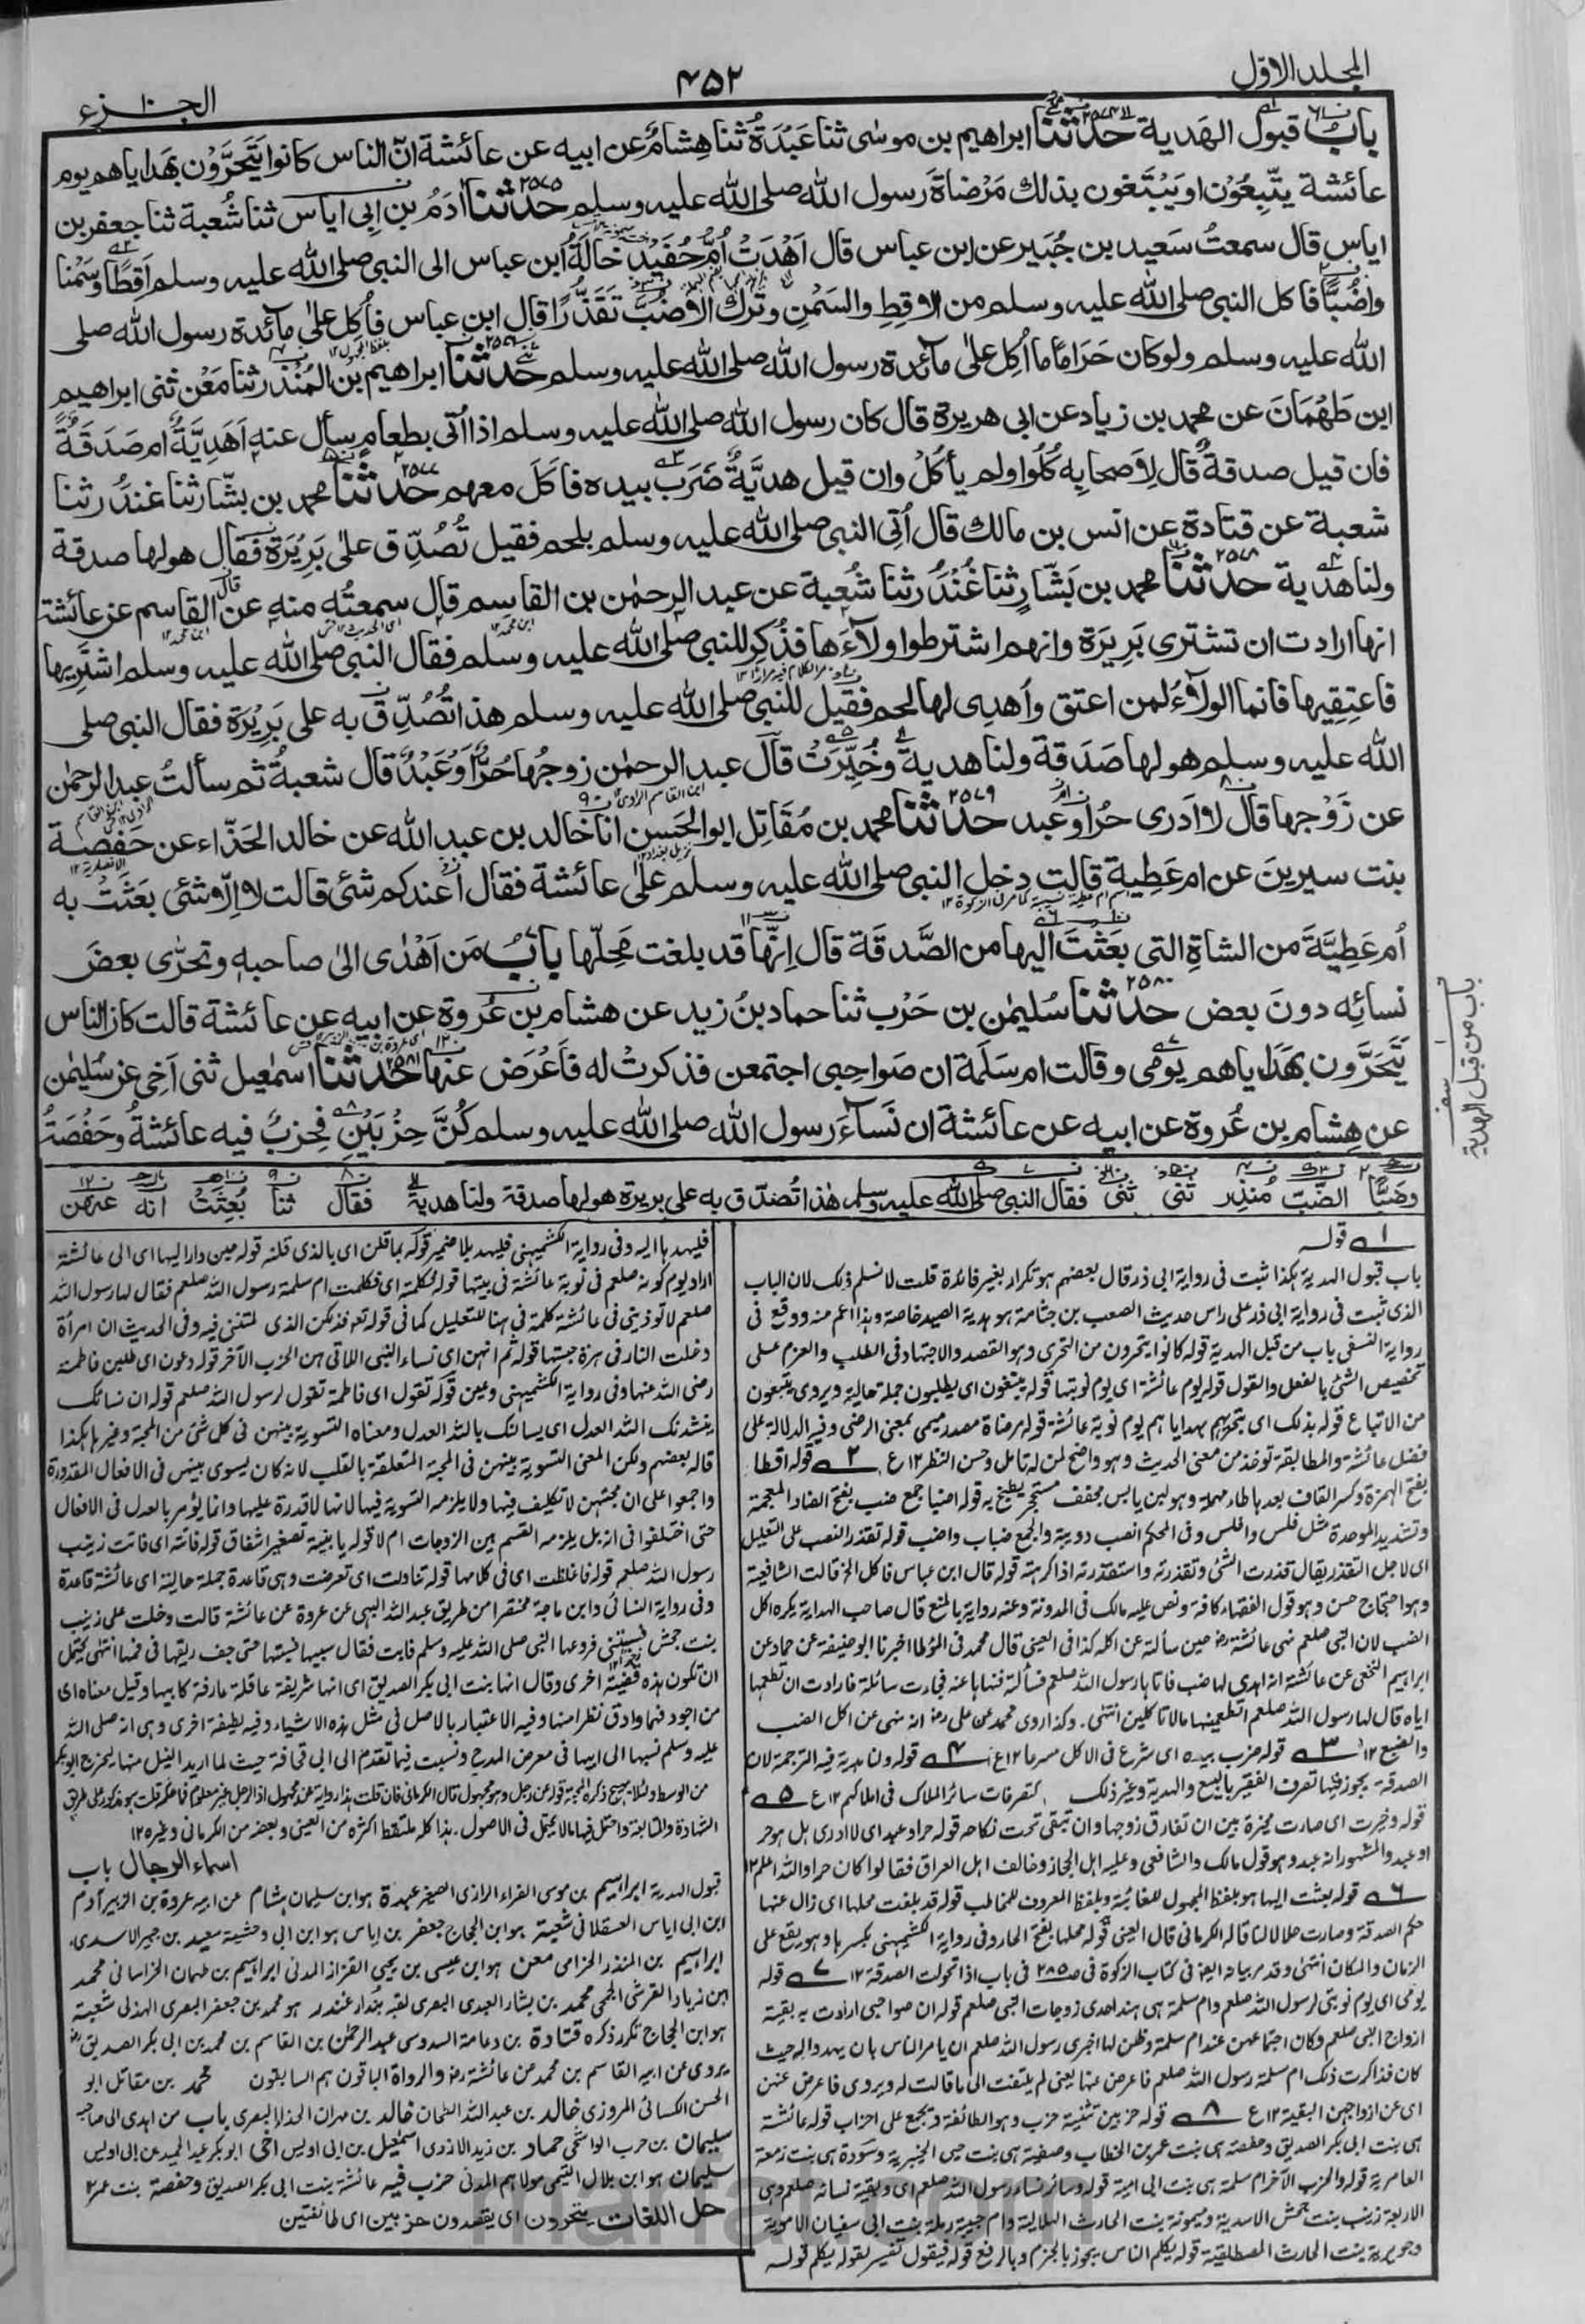 المجلد الاوّل
۴۵۲
الجزء ۱۰
باب قبول الهدية حدثنا ابراهيم بن موسى ثنا عَبْدَةُ ثنا هِشامٌ عن ابيه عن عائشة انّ الناس كانوا يَتَحَرَّوْن بهَداياهم يوم
عائشة يتّبِعُوْن او يَبْتَغون بذلك مَرْضاةَ رسول الله صلى الله عليه وسلم ۲۵۷۵ حدثنا اٰدَمُ بن ابى اياس ثنا شُعبة ثنا جعفر بن
اياس قال سمعتُ سَعيد بن جُبَير عن ابن عباس قال اَهْدَتْ اُمُّ حُفَيْد خالَةُ ابن عباس الى النبي صلى الله عليه وسلم اَقِطًا وسَمْنا
واَضُبًّا فاكل النبي صلى الله عليه وسلم من الاقِطِ والسَمْنِ وترك الاضبّ تَقَذُّرًا قال ابن عباس فاُكِل على مآئدة رسول الله صلى
الله عليه وسلم ولو كان حَرَامًا ما اُكِل على مآئدة رسول الله صلى الله عليه وسلم ۲۵۷۶ حدثنا ابراهيم بن المُنْذر ثنا مَعْن ثنى ابراهيم
ابن طَهْمَانَ عن محمد بن زياد عن ابى هريرة قال كان رسول الله صلى الله عليه وسلم اذا اُتى بطعام سأل عنه اَهَدِيَّةٌ ام صَدَقَةٌ
فان قيل صدقةٌ قال لاصحابِه كُلُوا ولم يأكُلْ وان قيل هديَّةٌ ضَرَبَ بيده فاكَلَ معهم ۲۵۷۷ حدثنا محمد بن بشّار ثنا غندُر ثنا
شعبة عن قتادة عن انس بن مالك قال اُتِى النبي صلى الله عليه وسلم بلحم فقيل تُصُدِّق على بَرِيْرَة فقال هو لها صدقة
ولنا هديّة ۲۵۷۸ حدثنا محمد بن بَشّارٍ ثنا غُنْدَرٌ ثنا شُعبة عن عبد الرحمٰن بن القاسم قال سمعتُه منه عن القاسم عن عائشة
انها ارادت ان تشترى بَرِيرَة وانهم اشترطوا ولآءَها فذُكِر للنبي صلى الله عليه وسلم فقال النبي صلى الله عليه وسلم اشتَرِيها
فاَعتِقِيها فانما الولآءُ لمن اعتق واُهدِى لها لحم فقيل للنبي صلى الله عليه وسلم هذا تُصُدِّق به على بَرِيْرَة فقال النبي صلى
الله عليه وسلم هو لها صَدَقة ولنا هدية وخُيِّرَتْ قالَ عبد الرحمٰن زوجُها حُرٌّ او عَبْدٌ قال شعبةُ ثم سألتُ عبد الرحمٰن
عن زَوْجها قال لا اَدرى حُرٌّ او عبد ۲۵۷۹ حدثنا محمد بن مُقَاتِل ابو الحَسن انا خالد بن عبد الله عن خالد الحَذّاء عن حَفصة
بنت سيرينَ عن ام عَطِية قالت دخل النبي صلى الله عليه وسلم على عائشة فقال أعندكم شئ قالت لا اِلّا شئ بعَثَتْ به
اُم عَطِيَّةَ من الشاةِ التى بَعَثْتَ اليها من الصَّدقة قال اِنّها قد بلغت مَحِلّها بابُ مَن اَهْدٰى الىٰ صاحبه وتحرّى بعضَ
نسائه دونَ بعض ۲۵۸۰ حدثنا سُليمٰن بن حَرْب ثنا حماد بنُ زيد عن هشام بن عُروة عن ابيه عن عائشة قالت كان الناس
يَتَحَرَّون بهَدَاياهم يَومى وقالت ام سَلَمة ان صَواحِبى اجتمعن فذكرتْ له فاَعْرَض عنها ۲۵۸۱ حدثنا اسمٰعيل ثنى اَخى عن سُليمٰن
عن هِشام بن عُروة عن ابيه عن عائشة ان نَسآءَ رسول الله صلى الله عليه وسلم كُنَّ حِزْبَيْنِ فحِزبٌ فيه عائشةُ وحَفْصَةُ
باب من قبل الهدية
وضَبًّا الضَّبّ مُنذِر ثنى ثنى فقال النبي صلى الله عليه وسلم هٰذا تُصُدِّق به على بريرة هو لها صدقة ولنا هدية فقال ثنا بُعِثَتْ انه عنهن
۱ قوله
باب قبول الهدية هكذا ثبت فى رواية ابى ذر قال بعضهم هو تكرار بغير فائدة قلت لا نسلم ذلك لان الباب
الذى ثبت فى رواية ابى ذر على راس حديث الصعب بن جثامة هو هدية الصيد خاصة وهذا اعم منه ووقع فى
رواية النسفى باب من قبل الهدية قوله كانوا يتحرون من التحرى وهو القصد والاجتهاد فى الطلب والعزم على
تخصيص الشئ بالفعل والقول قوله يوم عائشة اى يوم نوبتها قوله يبتغون اى يطلبون جملة حالية ويروى يتبعون
من الاتباع قوله بذلك اى بتحريهم بهداياهم يوم نوبة عائشة قوله مرضاة مصدر ميمى بمعنى الرضى وفيه الدلالة على
فضل عائشة والمطابقة توخذ من معنى الحديث وهو واضح لمن له تامل وحسن النظر ۱۲ ع ۲ قوله اقطا
بفتح الهمزة وكسر القاف بعدها طاء مهملة وهو لبن يابس مجفف مستحجر يطبخ به قوله اضبا جمع ضب بفتح الضاد المعجمة
وتشديد الموحدة مثل فلس وافلس وفى المحكم الضب دويبة والجمع ضباب واضب قوله تقذرا النصب على التعليل
اى لاجل التقذر يقال قذرت الشئ وتقذرته واستقذرته اذا كرهته قوله قال ابن عباس فاكل الخ قالت الشافعية
وهو احتجاج حسن وهو قول الفقهاء كافة ونص عليه مالك فى المدونة وعنه رواية بالمنع قال صاحب الهداية يكره اكل
الضب لان النبى صلعم نهى عائشة رضـ حين سألته عن اكله كذا فى العينى قال محمد فى المؤطا اخبرنا ابو حنيفة عن حماد عن
ابراهيم النخعى عن عائشة انه اهدى لها ضب فاتاها رسول الله صلعم فسألته فنهاها عنه فجاءت سائلة فارادت ان تطعمها
اياه قال لها رسول الله صلعم اتطعمينها مالا تاكلين انتهى. وكذا روى محمد عن على رضـ انه نهى عن اكل الضب
والضبع ۱۲ ۳ قوله ضرب بيده اى شرع فى الاكل مسرعا ۱۲ ع ۴ قوله ولنا هدية فيه الترجمة لان
الصدقة يجوز فيها تصرف الفقير بالبيع والهدية وغير ذلك كتصرفات سائر الملاك فى املاكهم ۱۲ ع ۵
قوله وخيرت اى صارت مخيرة بين ان تفارق زوجها وان تبقى تحت نكاحه قوله حر او عبد اى لا ادرى هل هو حر
او عبد والمشهور انه عبد وهو قول مالك والشافعى وعليه اهل الحجاز وخالف اهل العراق فقالوا كان حرا والله اعلم ۱۲
۶ قوله بعثت اليها هو بلفظ المجهول للغائبة وبلفظ المعروف للمخاطب قوله قد بلغت محلها اى زال عنها
حكم الصدقة وصارت حلالا لنا قاله الكرمانى قال العينى قوله محلها بفتح الحاء وفى رواية الكشميهنى بكسرها وهو يقع على
الزمان والمكان انتهى وقد مر بيانه ايضا فى كتاب الزكوة فى صـ ۲۸۵ فى باب اذا تحولت الصدقة ۱۲ ۷ قوله
يومى اى يوم نوبتى لرسول الله صلعم وام سلمة هى هند احدى زوجات النبى صلعم قوله ان صواحبى ارادت به بقية
ازواج النبى صلعم وكان اجتماعهن عند ام سلمة وقلن لها اخبرى رسول الله صلعم ان يامر الناس بان يهدوا له حيث
كان فذكرت ذلك ام سلمة رسول الله صلعم فاعرض عنها يعنى لم يلتفت الى ما قالت له ويروى فاعرض عنهن
اى عن ازواجهن البقية ۱۲ ع ۸ قوله حزبين تثنية حزب وهو الطائفة ويجمع على احزاب قوله عائشة
هى بنت ابى بكر الصديق وحفصة هى بنت عمر بن الخطاب وصفية هى بنت حيى الخيبرية وسودة هى بنت زمعة
العامرية قوله والحزب الآخر ام سلمة هى بنت ابى امية قوله وسائر نساء رسول الله صلعم اى وبقية نسائه صلعم وهى
الاربعة زينب بنت جحش الاسدية وميمونة بنت الحارث الهلالية وام حبيبة رملة بنت ابى سفيان الاموية
وجويرية بنت الحارث المصطلقية قوله يكلم الناس يجوز بالجزم وبالرفع قوله فيقول تفسير لقوله يكلم قوله
فليهدها اليه وفى رواية الكشميهنى فليهد بلا ضمير قوله بما قلن اى بالذى قلنه قوله حين دار اليها اى الى عائشة
اراد يوم كونه صلعم فى نوبة عائشة فى بيتها قوله فكلمته اى فكلمت ام سلمة رسول الله صلعم فقال لها رسول الله
صلعم لا توذينى فى عائشة كلمة فى هنا للتعليل كما فى قوله تعـ فذلكن الذى لمتننى فيه وفى الحديث ان امرأة
دخلت النار فى هرة حبستها قوله ثم انهن اى نساء النبى اللاتى هن الحزب الآخر قوله دعون اى طلبن فاطمة
رضى الله عنها وفى رواية الكشميهنى دعين قوله تقول اى فاطمة تقول لرسول الله صلعم قوله ان نسائك
ينشدنك الله العدل اى يسألنك بالله العدل ومعناه التسوية بينهن فى كل شئ من المحبة وغيرها هكذا
قاله بعضهم ولكن المعنى التسوية بينهن فى المحبة المتعلقة بالقلب لانه كان يسوى بينهن فى الافعال المقدورة
واجمعوا على ان محبتهن لا تكليف فيها ولا يلزمه التسوية فيها لانها لا قدرة عليها وانما يؤمر بالعدل فى الافعال
حتى اختلفوا فى انه هل يلزمه القسم بين الزوجات ام لا قوله يا بنية تصغير اشفاق قوله فاتته اى فاتت زينب
رسول الله صلعم قوله فاغلظت اى فى كلامها قوله تناولت اى تعرضت وهى قاعدة جملة حالية اى عائشة قاعدة
وفى رواية النسائى وابن ماجة مختصرا من طريق عبد الله البهى عن عروة عن عائشة قالت دخلت على زينب
بنت جحش فسبتنى فردعها النبى صلى الله عليه وسلم فابت فقال سبيها فسببتها حتى جف ريقها فى فمها انتهى يحتمل
ان تكون هذه قضية اخرى وقال انها بنت ابى بكر الصديق اى انها شريفة عاقلة عارفة كابيها وقيل معناه اى
من اجود فهما وادق نظرا منها وفيه الاعتبار بالاصل فى مثل هذه الاشياء وفيه لطيفة اخرى وهى انه صلى الله
عليه وسلم نسبها الى ابيها فى معرض المدح ونسبت فيما تقدم الى ابى قحافة حيث لما اريد النيل منها ليخرج ابو بكر
من الوسط ولئلا يهيج ذكره المحبة قوله عن رجل وهو مجهول قال الكرمانى فان قلت هذا رواية عن مجهول اذ الرجل غير معلوم فما حكمه قلت هو مذكور على طريق
الشهادة والمتابعة واحتمل فيها مالا يحتمل فى الاصول. هذا كله ملتقط اكثره من العينى وبعضه من الكرمانى وغيره ۱۲
اسماء الرجال باب
قبول الهدية ابراهيم بن موسى الفراء الرازى الصغير عبدة هو ابن سليمان هشام عن ابيه عروة بن الزبير آدم
ابن ابى اياس العسقلانى شعبة هو ابن الحجاج جعفر بن اياس هو ابن ابى وحشية سعيد بن جبير الاسدى.
ابراهيم بن المنذر الحزامى معن هو ابن عيسى بن يحيى القزاز المدنى ابراهيم بن طهمان الخراسانى محمد
ابن زياد القرشى الجمحى محمد بن بشار العبدى البصرى لقبه بندار غندر هو محمد بن جعفر البصرى الهذلى شعبة
هو ابن الحجاج تكرر ذكره قتادة بن دعامة السدوسى عبد الرحمٰن بن القاسم بن محمد بن ابى بكر الصديق رضـ
يروى عن ابيه القاسم بن محمد عن عائشة رضـ والرواة الباقون هم السابقون محمد بن مقاتل ابو
الحسن الكسائى المروزى خالد بن عبد الله الطحان خالد بن مهران الحذاء البصرى باب من اهدى الى صاحبه
سليمان بن حرب الواشحى حماد بن زيد الازدى اسمٰعيل بن ابى اويس اخى ابو بكر عبد الحميد بن ابى اويس
سليمان هو ابن بلال التيمى مولاهم المدنى حزب فيه عائشة بنت ابى بكر الصديق وحفصة بنت عمر ۱۲
حل اللغات يتحرون اى يقصدون حزبين اى طائفتين
marfat.com